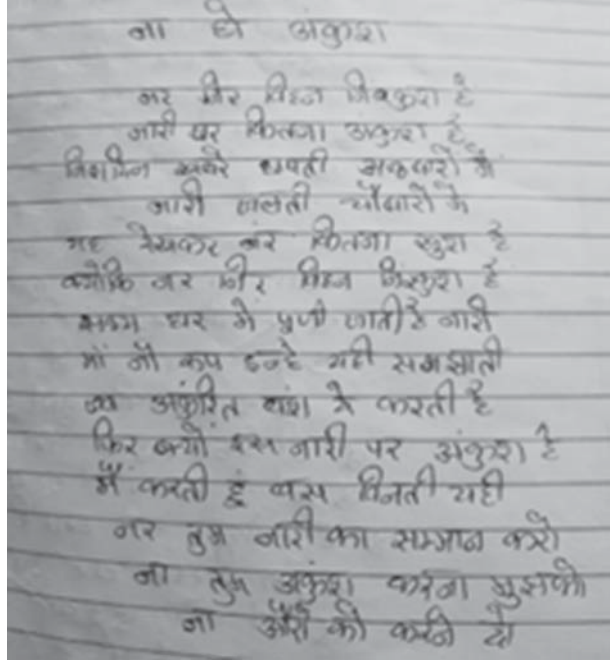 ना हो अंकुश
नर फिर निरंकुश है
नारी पर कितना अंकुश है
खबरे छपती अखबारो में
नारी जलती चौबारो में
यह देखकर नर कितना खुश है
क्योंकि नर फिर निरंकुश है
घर में पुजी जाती है नारी
माँ का रूप इन्हे यही समझाती
अंकुरित वंश ये करती है
फिर क्यों इस नारी पर अंकुश है
मैं करती हूं बस विनती यही
नर तुम नारी का सम्मान करो
ना तुम अंकुश करना मुझको
ना औरों को करने दो